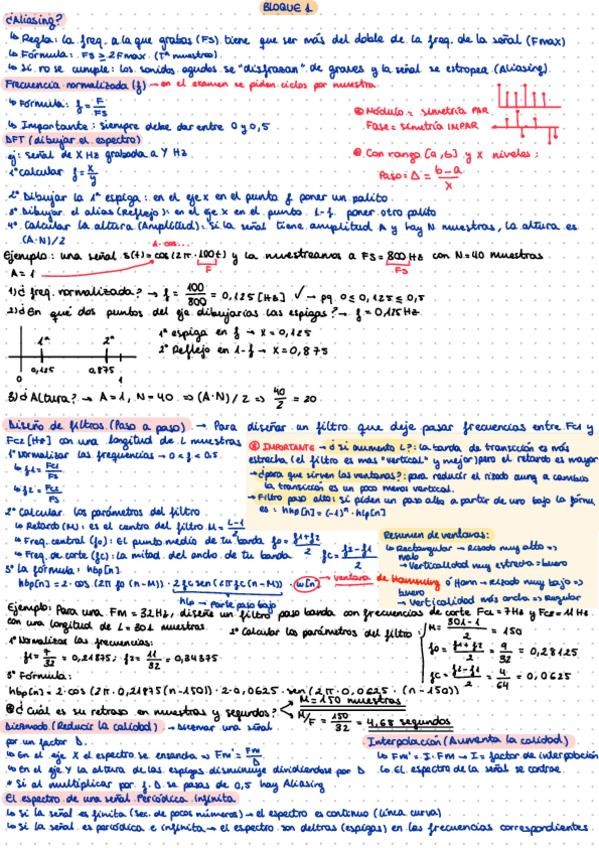 BLOQUE 1
¿Aliasing?
↳ Regla: la freq. a la que grabas (Fs) tiene que ser más del doble de la freq. de la señal (Fmax)
↳ Fórmula: Fs ≥ 2Fmax (Tª muestreo)
↳ Si no se cumple: los sonidos agudos se "disfrazan" de graves y la señal se estropea (Aliasing).
Frecuencia normalizada (f) → en el examen se piden ciclos por muestra
↳ Fórmula: f = F/Fs
↳ Importante: siempre debe dar entre 0 y 0,5
Módulo = simetría PAR
Fase = simetría IMPAR
DFT (dibujar el espectro)
Con rango [a,b] y x niveles:
Paso = Δ = b-a/x
ej: señal de X Hz grabada a Y Hz
1º calcular f = x/y
2º Dibujar la 1ª espiga: en el eje x en el punto f poner un palito
3º Dibujar el alias (reflejo): en el eje x en el punto 1-f poner otro palito
4º Calcular la altura (Amplitud): si la señal tiene amplitud A y hay N muestras, la altura es
(A·N)/2
A·cos...
Ejemplo: una señal s(t) = cos(2π·100t) y la muestreamos a Fs = 800 Hz con N=40 muestras
F
Fs
A = 1
1) ¿freq. normalizada? → f = 100/800 = 0,125 [Hz] ✓ → pq 0 ≤ 0,125 ≤ 0,5
2) ¿En qué dos puntos del eje dibujarías las espigas? → f = 0,125 Hz
1ª espiga en f → x = 0,125
2ª Reflejo en 1-f → x = 0,875
1ª 2ª
0 0,125 0,875 1
3) ¿Altura? → A=1, N=40 ⇒ (A·N)/2 ⇒ 40/2 = 20
Diseño de filtros (Paso a paso) → Para diseñar un filtro que deje pasar frecuencias entre Fc1 y
Fc2 [Hz] con una longitud de L muestras
1º Normalizar las frecuencias → 0 < f < 0.5
↳ f1 = Fc1/Fs
↳ f2 = Fc2/Fs
IMPORTANTE → ¿si aumento L?: la banda de transición es más
estrecha (el filtro es mas "vertical" y mejor) pero el retardo es mayor
→ ¿para que sirven las ventanas?: para reducir el rizado aunq a cambio
la transición es un poco menos vertical.
→ Filtro paso alto: si piden un paso alto a partir de uno bajo la fórmu
es: hhp[n] = (-1)ⁿ·hlp[n]
2º Calcular los parámetros del filtro
↳ Retardo (M): es el centro del filtro M = L-1/2
↳ Freq. central (fo): El punto medio de tu banda fo = f1+f2/2
↳ Freq. de corte (fc): la mitad del ancho de tu banda fc = f2-f1/2
Resumen de ventanas:
↳ Rectangular → Rizado muy alto ⇒
malo
→ Verticalidad muy estrecha = bueno
↳ Hamming ó Hann → Rizado muy bajo ⇒
bueno
→ Verticalidad más ancha ⇒ Regular
3º la fórmula: hbp[n]
hbp[n] = 2·cos(2π fo (n-M))· 2fc sen(2π fc (n-M)) · w[n] → ventana de Hamming
hlp → parte paso bajo
Ejemplo: Para una Fm = 32Hz, diseñe un filtro paso banda con frecuencias de corte Fc1 = 7Hz y Fc2 = 11 Hz
con una longitud de L = 301 muestras.
1º Normalizar las frecuencias:
f1 = 7/32 = 0,21875; f2 = 11/32 = 0,34375
2º Calcular los parámetros del filtro
M = 301-1/2 = 150
fo = f1+f2/2 = 9/32 = 0,28125
fc = f2-f1/2 = 4/64 = 0,0625
3º Fórmula:
hbp[n] = 2·cos(2π·0,21875(n-150))·2·0,0625·sen(2π·0,0625·(n-150))
¿Cuál es su retraso en muestras y segundos?
M = 150 muestras
M/F = 150/32 = 4,68 segundos
Diezmado (Reducir la calidad) → Diezmar una señal
por un factor D.
↳ En el eje X el espectro se ensancha ⇒ Fm' = Fm/D
↳ En el eje Y la altura de las espigas disminuye dividiéndose por D
* Si al multiplicar por f·D se pasas de 0,5 hay Aliasing
Interpolación (Aumenta la calidad)
↳ Fm' = I·Fm → I = factor de interpolación
↳ El espectro de la señal se contrae.
El espectro de una señal Periódica infinita
↳ Si la señal es finita (sec. de pocos números) → el espectro es continuo (línea curva)
↳ Si la señal es periódica e infinita → el espectro son deltras (espigas) en las frecuencias correspondientes.